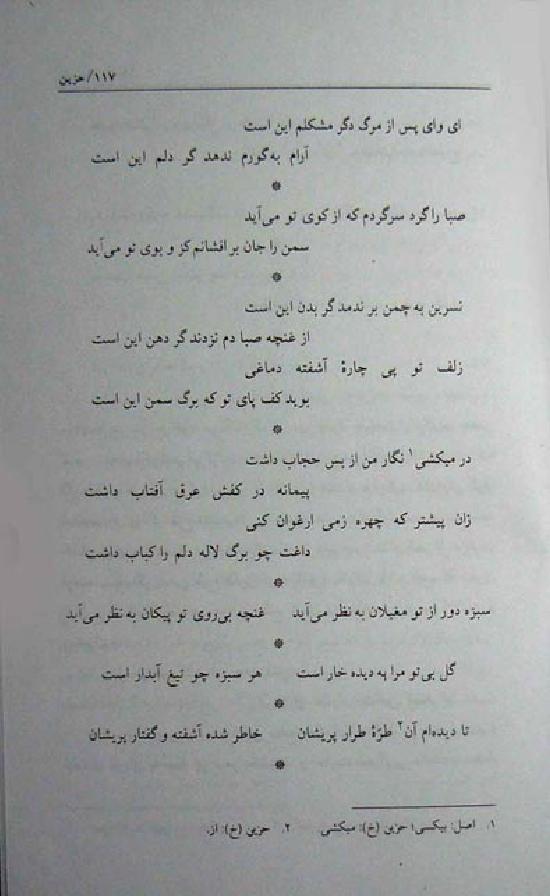 ۱۱۷/حزین
ای وای پس از مرگ دگر مشکلم این است
آرام به‌گورم ندهد گر دلم این است
*
صبا را گرد سرگردم که از کوی تو می‌آید
سمن را جان برافشانم کز و بوی تو می‌آید
*
نسرین به چمن بر ندمد گر بدن این است
از غنچه صبا دم نزدند گر دهن این است
زلف تو پی چارهٔ آشفته دماغی
بوید کف پای تو که برگ سمن این است
*
در میکشی۱ نگار من از بس حجاب داشت
پیمانه در کفش عرق آفتاب داشت
زان پیشتر که چهره زمی ارغوان کنی
داغت چو برگ لاله دلم را کباب داشت
*
سبزه دور از تو مغیلان به نظر می‌آید غنچه بی‌روی تو پیکان به نظر می‌آید
*
گل بی‌تو مرا به دیده خار است هر سبزه چو تیغ آبدار است
*
تا دیده‌ام آن۲ طرّهٔ طرار پریشان خاطر شده آشفته و گفتار پریشان
*
۱. اصل: بیکسی؛ حزین (خ): میکشی ۲. حزین (خ): از.